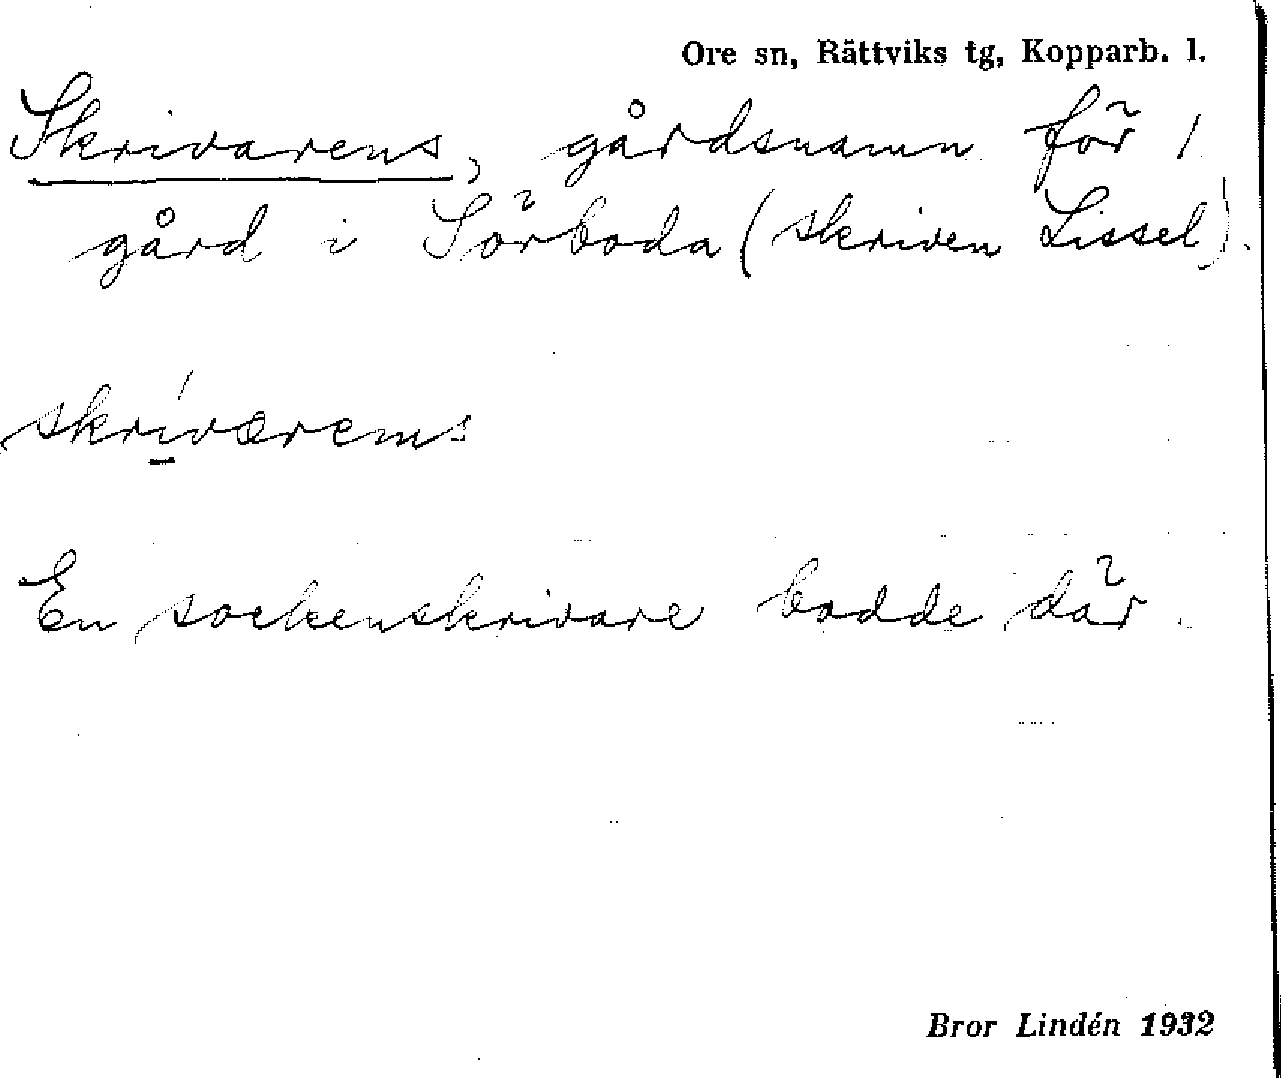 Ore sn, Rättviks tg, Kopparb. l.
Skrivarens, gårdsnamn för 1
gård i Sörboda (skriven Lissel).
skriværems
En sockenskrivare bodde där.
Bror Lindén 1932